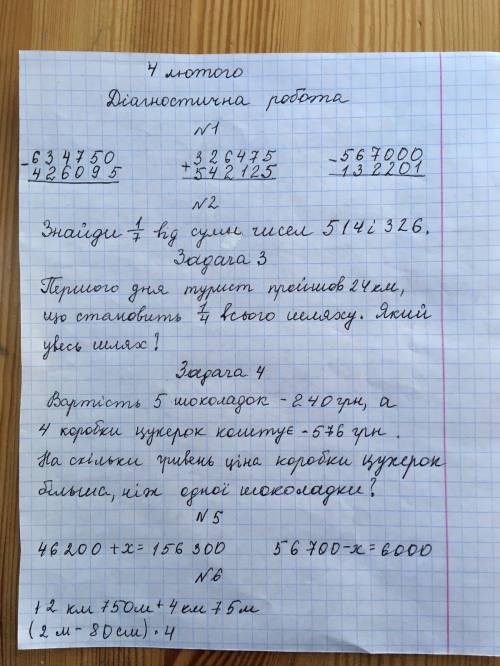 4 лютого
Діагностична робота
N1
-634750 +326475 -567000
426095 542125 132201
N2
Знайди 1/7 від суми чисел 514 і 326.
Задача 3
Першого дня турист пройшов 24 км,
що становить 1/4 всього шляху. Який
увесь шлях?
Задача 4
Вартість 5 шоколадок - 240 грн, а
4 коробки цукерок коштує - 576 грн.
На скільки гривень ціна коробки цукерок
більша, ніж одної шоколадки?
N5
46200 + x = 156300 56700 - x = 6000
N6
12 км 750м + 4 км 75 м
(2 м - 80 см) · 4